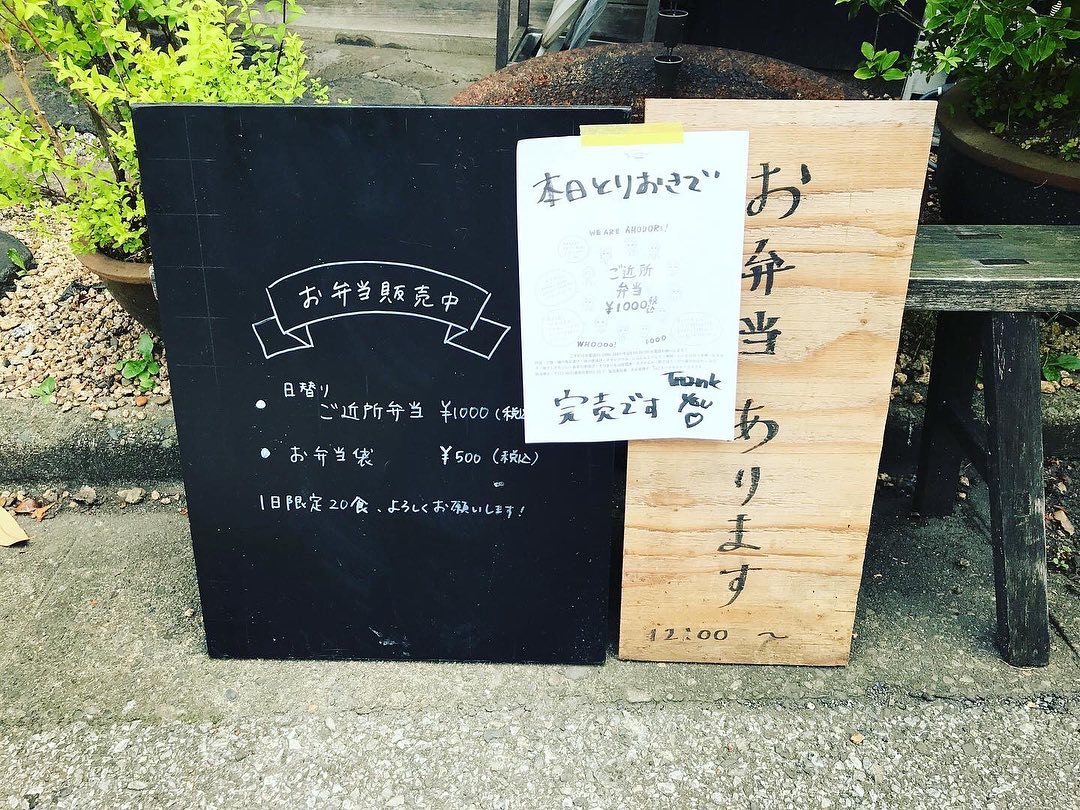 お弁当販売中
日替り
● ご近所弁当 ¥1000(税込
● お弁当俵 ¥500(税込)
1日限定20食、よろしくお願いします!
本日とりおきで
WE ARE AHODORI!
ご近所
弁当
¥1000税込
WHOOOO!
完売です
Thank
You
♡
お弁当あります
12:00 〜